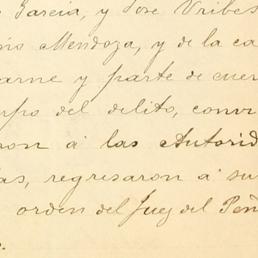 García, y José Uribes
Mendoza, y de la ca
arne y parte de cuer
rpo del delito, conv
ron á las Autorid
as, regresaron á su
orden del Juez del Peñ